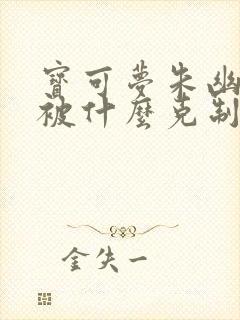 寶可夢朱幽
被什麼克制
金失一